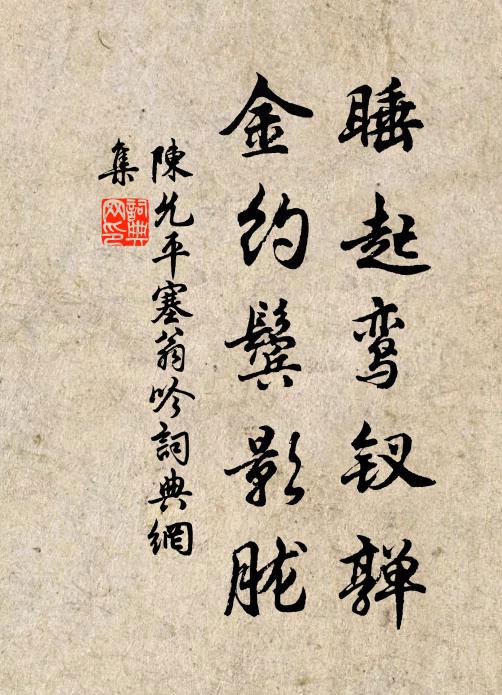 睡起鸾钗亸
金约鬓影胧
陳允平塞翁吟詞典網
集
詞典網印